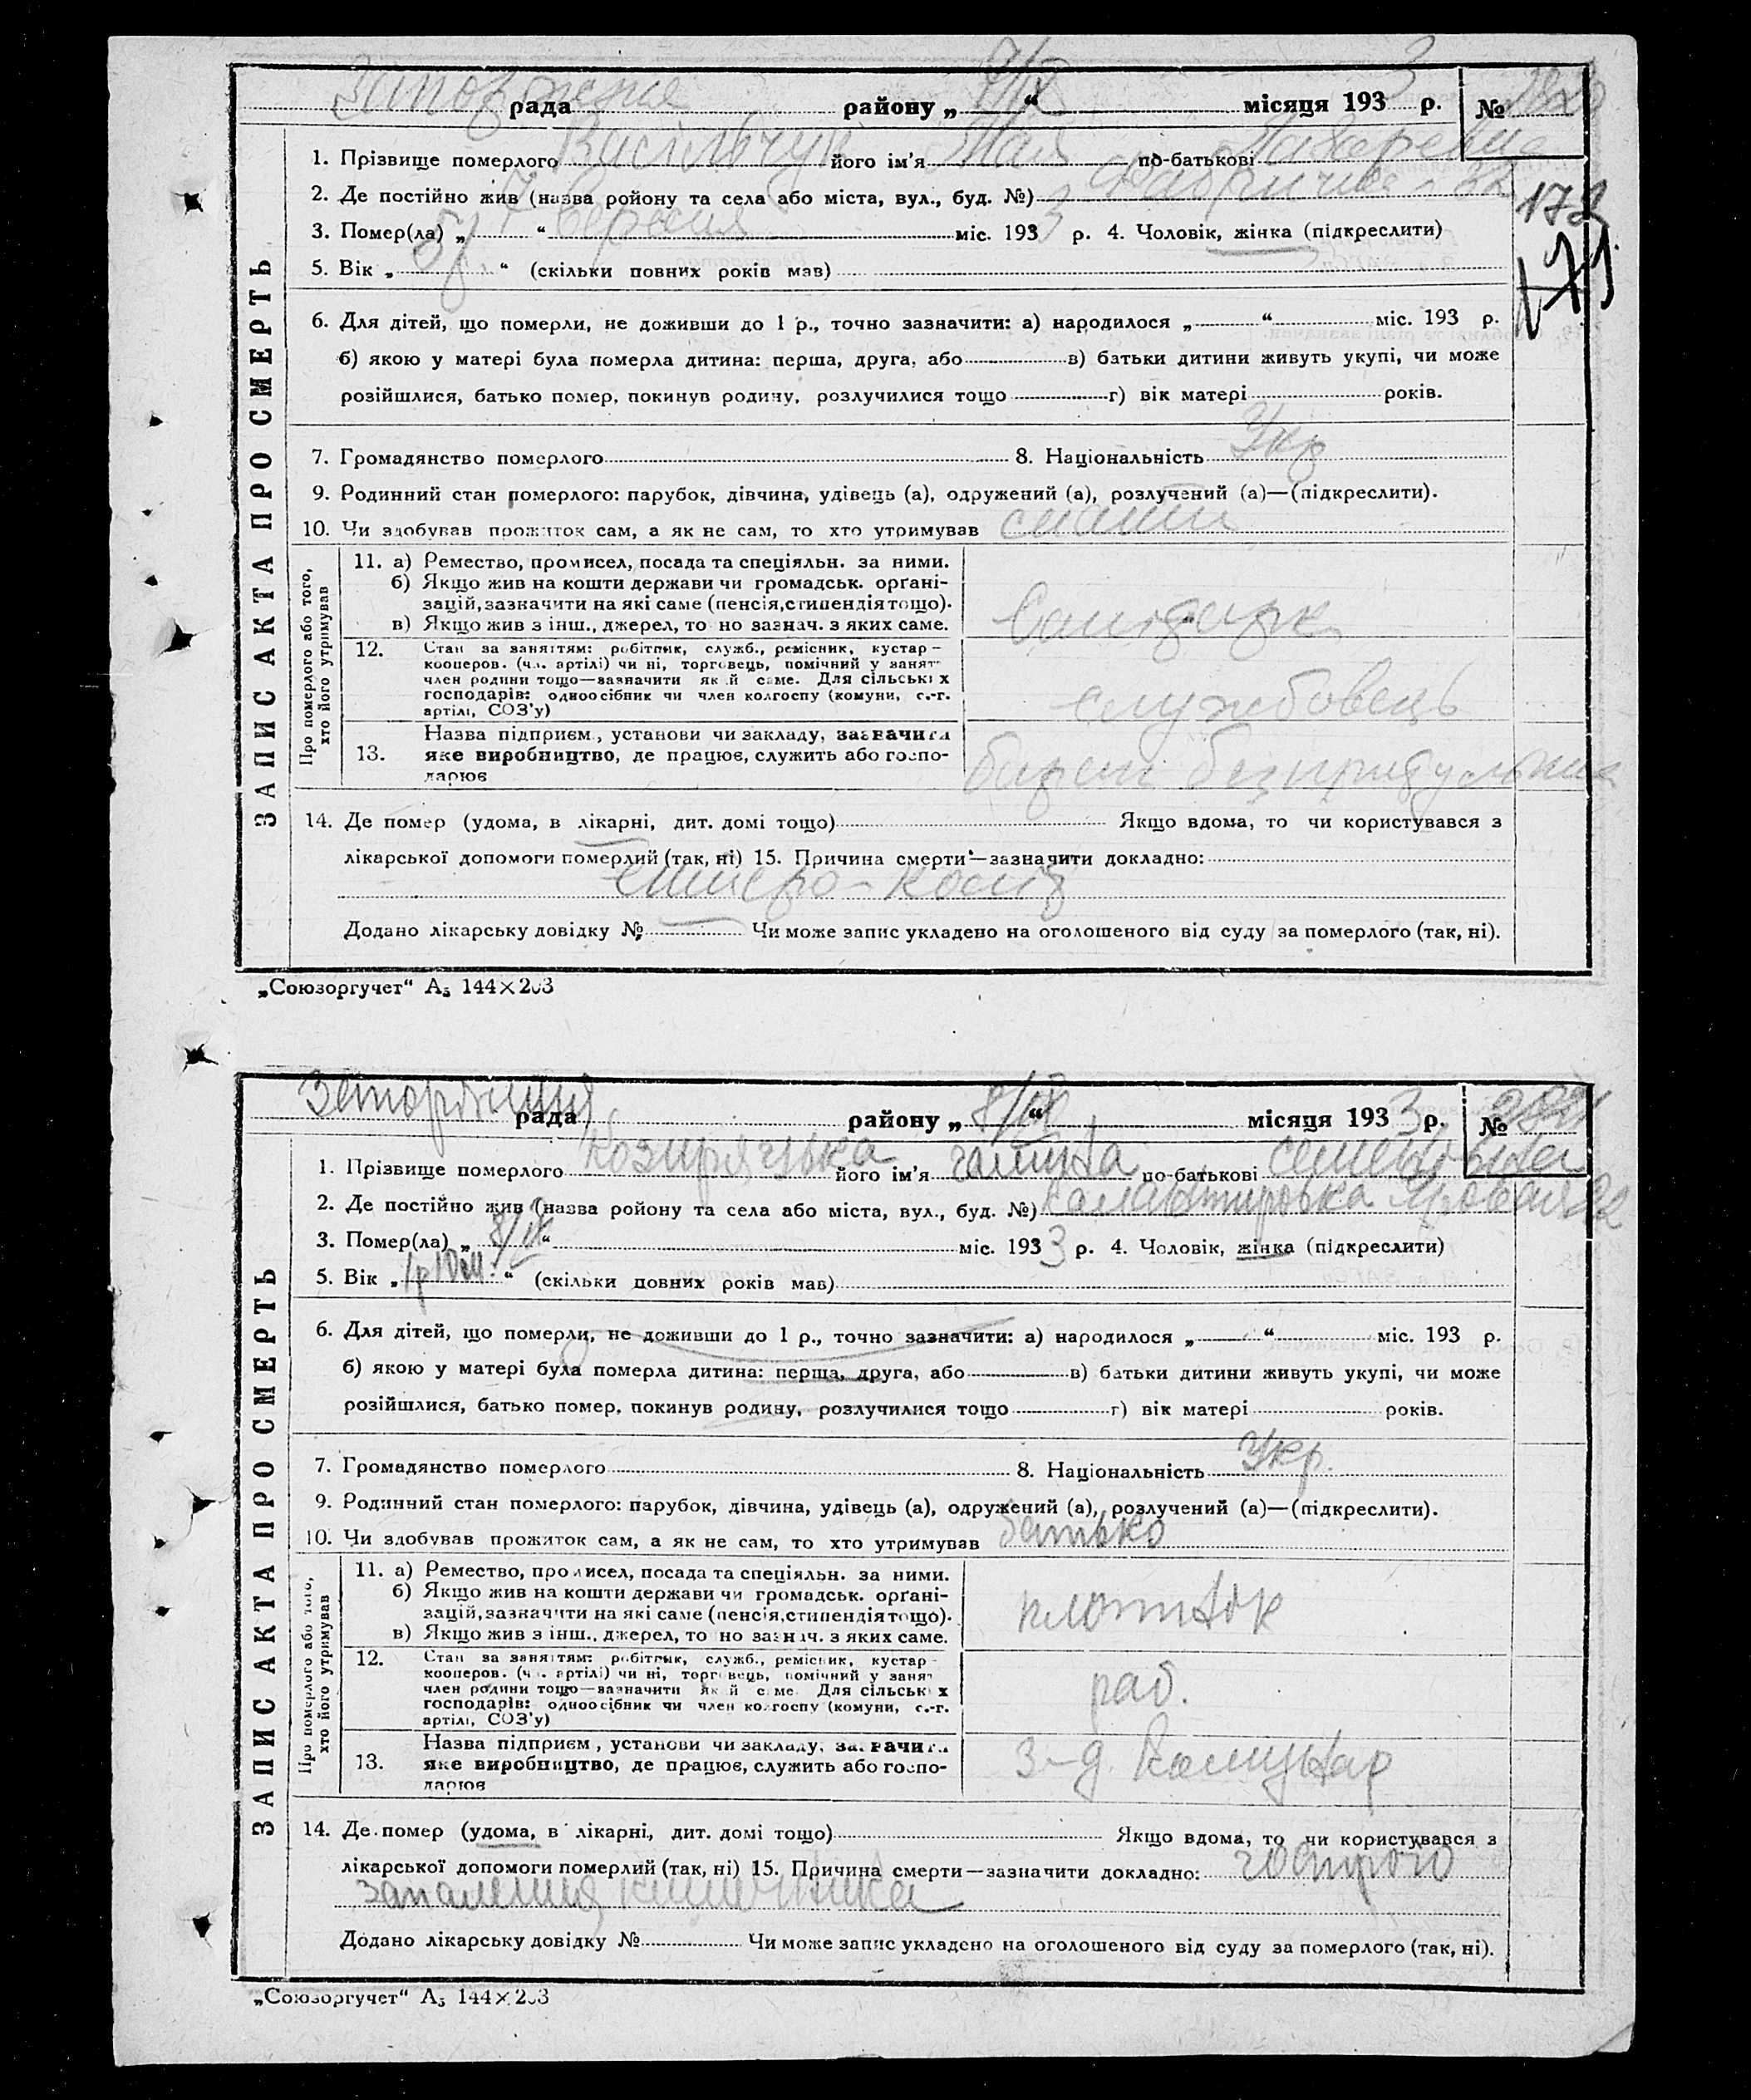 рада району „ 7/IX “ місяця 193 3 р. №
1. Прізвище померлого Васільчук його ім'я Мая по-батькові Макаревна
2. Де постійно жив (назва району та села або міста, вул., буд. №)
173
3. Помер(ла) „ 7 “ Вересня міс. 193 3 р. 4. Чоловік, жінка (підкреслити)
171
5. Вік „ “ (скільки повних років мав)
6. Для дітей, що померли, не доживши до 1 р., точно зазначити: а) народилося „ “ міс. 193 р.
б) якою у матері була померла дитина: перша, друга, або в) батьки дитини живуть укупі, чи може
розійшлися, батько помер, покинув родину, розлучилися тощо г) вік матері років.
7. Громадянство померлого 8. Національність Укр
9. Родинний стан померлого: парубок, дівчина, удівець (а), одружений (а), розлучений (а)—(підкреслити).
10. Чи здобував прожиток сам, а як не сам, то хто утримував
ЗАПИС АКТА ПРО СМЕРТЬ
Про померлого або того, хто його утримував
11. а) Ремество, промисел, посада та спеціяльн. за ними.
б) Якщо жив на кошти держави чи громадськ. орґані-
зацій, зазначити на які саме (пенсія, стипендія тощо).
в) Якщо жив з інш., джерел, то но зазнач. з яких саме.
12. Стан за заняттям: робітник, служб., ремісник, кустар –
кооперов. (чл. артілі) чи ні, торговець, помічний у занят
член родини тощо—зазначити який саме. Для сільських
господарів: одноосібник чи член колгоспу (комуни, с.-г.
артілі, СОЗ'у)
службовець
13. Назва підприєм., установи чи закладу, зазначити
яке виробництво, де працює, служить або госпо-
дарює
14. Де помер (удома, в лікарні, дит. домі тощо) Якщо вдома, то чи користувався з
лікарської допомоги померлий (так, ні) 15. Причина смерти—зазначити докладно:
ентеро-коліт
Додано лікарську довідку № Чи може запис укладено на оголошеного від суду за померлого (так, ні).
„Союзоргучет“ А₅ 144×203
рада району „ 8/IX “ місяця 193 3 р. №
1. Прізвище померлого його ім'я Ганна по-батькові Семенівна
2. Де постійно жив (назва району та села або міста, вул., буд. №)
3. Помер(ла) „ 8/IX “ міс. 193 3 р. 4. Чоловік, жінка (підкреслити)
5. Вік „ 1р 10м. “ (скільки повних років мав)
6. Для дітей, що померли, не доживши до 1 р., точно зазначити: а) народилося „ “ міс. 193 р.
б) якою у матері була померла дитина: перша, друга, або в) батьки дитини живуть укупі, чи може
розійшлися, батько помер, покинув родину, розлучилися тощо г) вік матері років.
7. Громадянство померлого 8. Національність Укр.
9. Родинний стан померлого: парубок, дівчина, удівець (а), одружений (а), розлучений (а)—(підкреслити).
10. Чи здобував прожиток сам, а як не сам, то хто утримував батько
ЗАПИС АКТА ПРО СМЕРТЬ
Про померлого або того, хто його утримував
11. а) Ремество, промисел, посада та спеціяльн. за ними.
б) Якщо жив на кошти держави чи громадськ. орґані-
зацій, зазначити на які саме (пенсія, стипендія тощо).
в) Якщо жив з інш., джерел, то но зазнач. з яких саме.
плотнік
12. Стан за заняттям: робітник, служб., ремісник, кустар –
кооперов. (чл. артілі) чи ні, торговець, помічний у занят
член родини тощо—зазначити який саме. Для сільських
господарів: одноосібник чи член колгоспу (комуни, с.-г.
артілі, СОЗ'у)
раб.
13. Назва підприєм., установи чи закладу, зазначити
яке виробництво, де працює, служить або госпо-
дарює
з-д. Комунар
14. Де помер (удома, в лікарні, дит. домі тощо) Якщо вдома, то чи користувався з
лікарської допомоги померлий (так, ні) 15. Причина смерти—зазначити докладно: гострого
запалення кишечника
Додано лікарську довідку № Чи може запис укладено на оголошеного від суду за померлого (так, ні).
„Союзоргучет“ А₅ 144×203